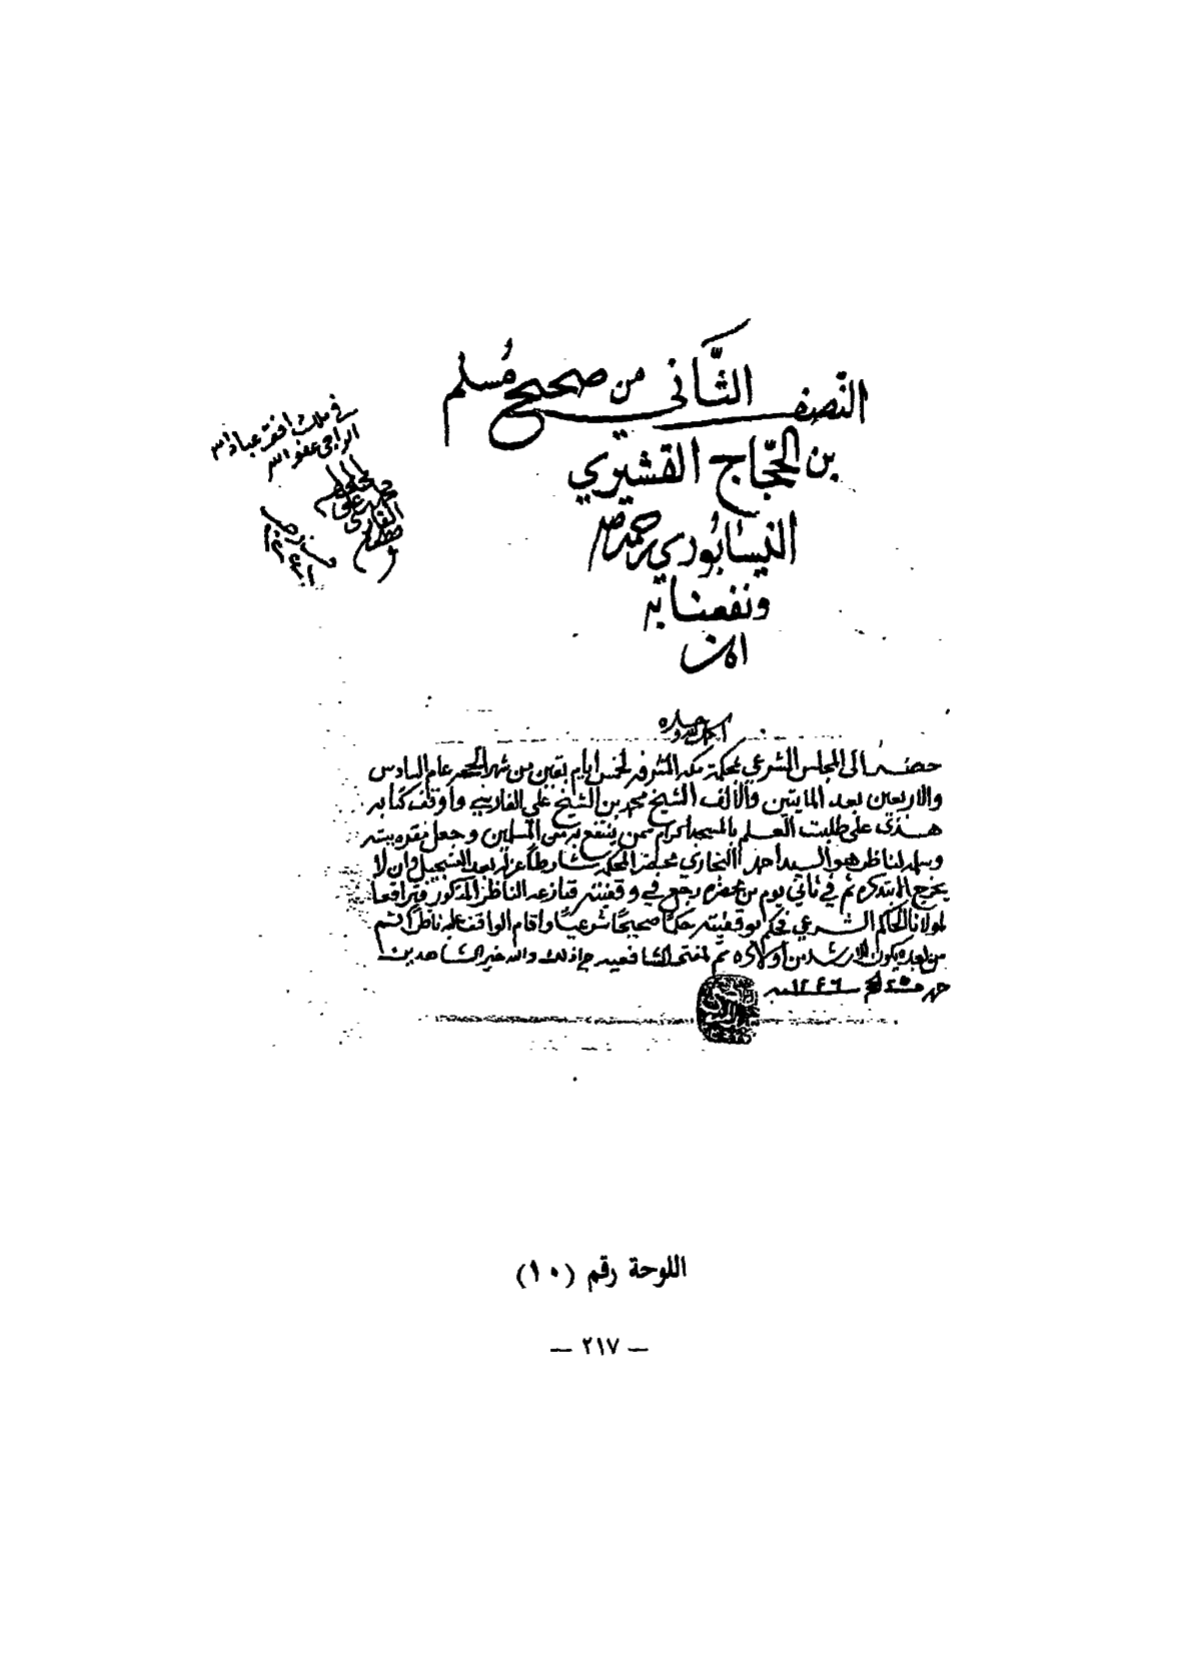 النّصف الثّاني من صحيح مُسلم
بن الحجّاج القشيري
النيسابُوري رحمه
ونفعنا به
امين
في ملك افقر عباد الله
الراجي عفو الله
محمد علي
سنة
الحمد لله وحده
حضر الى المجلس الشرعي بمحكمة مكة المشرفة لخمس ايام بقين من شهر عام السادس
والاربعين بعد المايتين والالف الشيخ محمد بن الشيخ علي الفارسي واوقف كتابه
هذا على طلبت العلم بالمسجد الحرام ممن ينتفع به من المسلمين وجعل مقره بيته
وسلمه لناظر هو السيد احمد البخاري بمحكمة شارطا عزله بعد التسجيل وان لا
يخرج الا بتذكره ثم في ثاني يوم من محضره رجع في وقفيته فنازعه الناظر المذكور فترافعا
لمولانا الحاكم الشرعي فحكم بوقفيته حكمًا صحيحًا شرعيًا واقام الواقف عليه ناظرًا ثم
من بعده يكون للارشد من اولاده ثم لمفتي الشافعية والله خير الشاهدين
٢٥ سنة ١٢٤٦
اللوحة رقم (١٠)
— ٢١٧ —